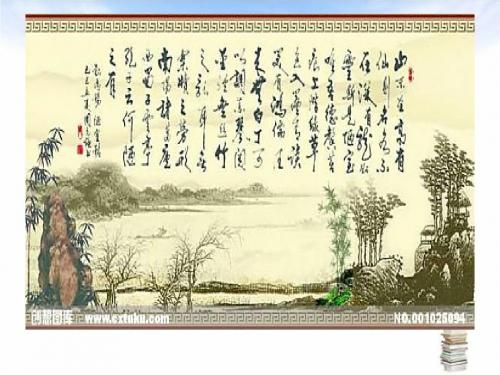 山不在高有
仙则名水不
在深有龙则
灵斯是陋室
唯吾德馨苔
痕上阶绿草
色入帘青谈
笑有鸿儒往
来无白丁可
以调素琴阅
金经无丝竹
之乱耳无
案牍之劳形
南阳诸葛庐
西蜀子云亭
孔子云何陋
之有
刘禹锡陋室铭
创想图库 www.cxtuku.com
NO.001025094